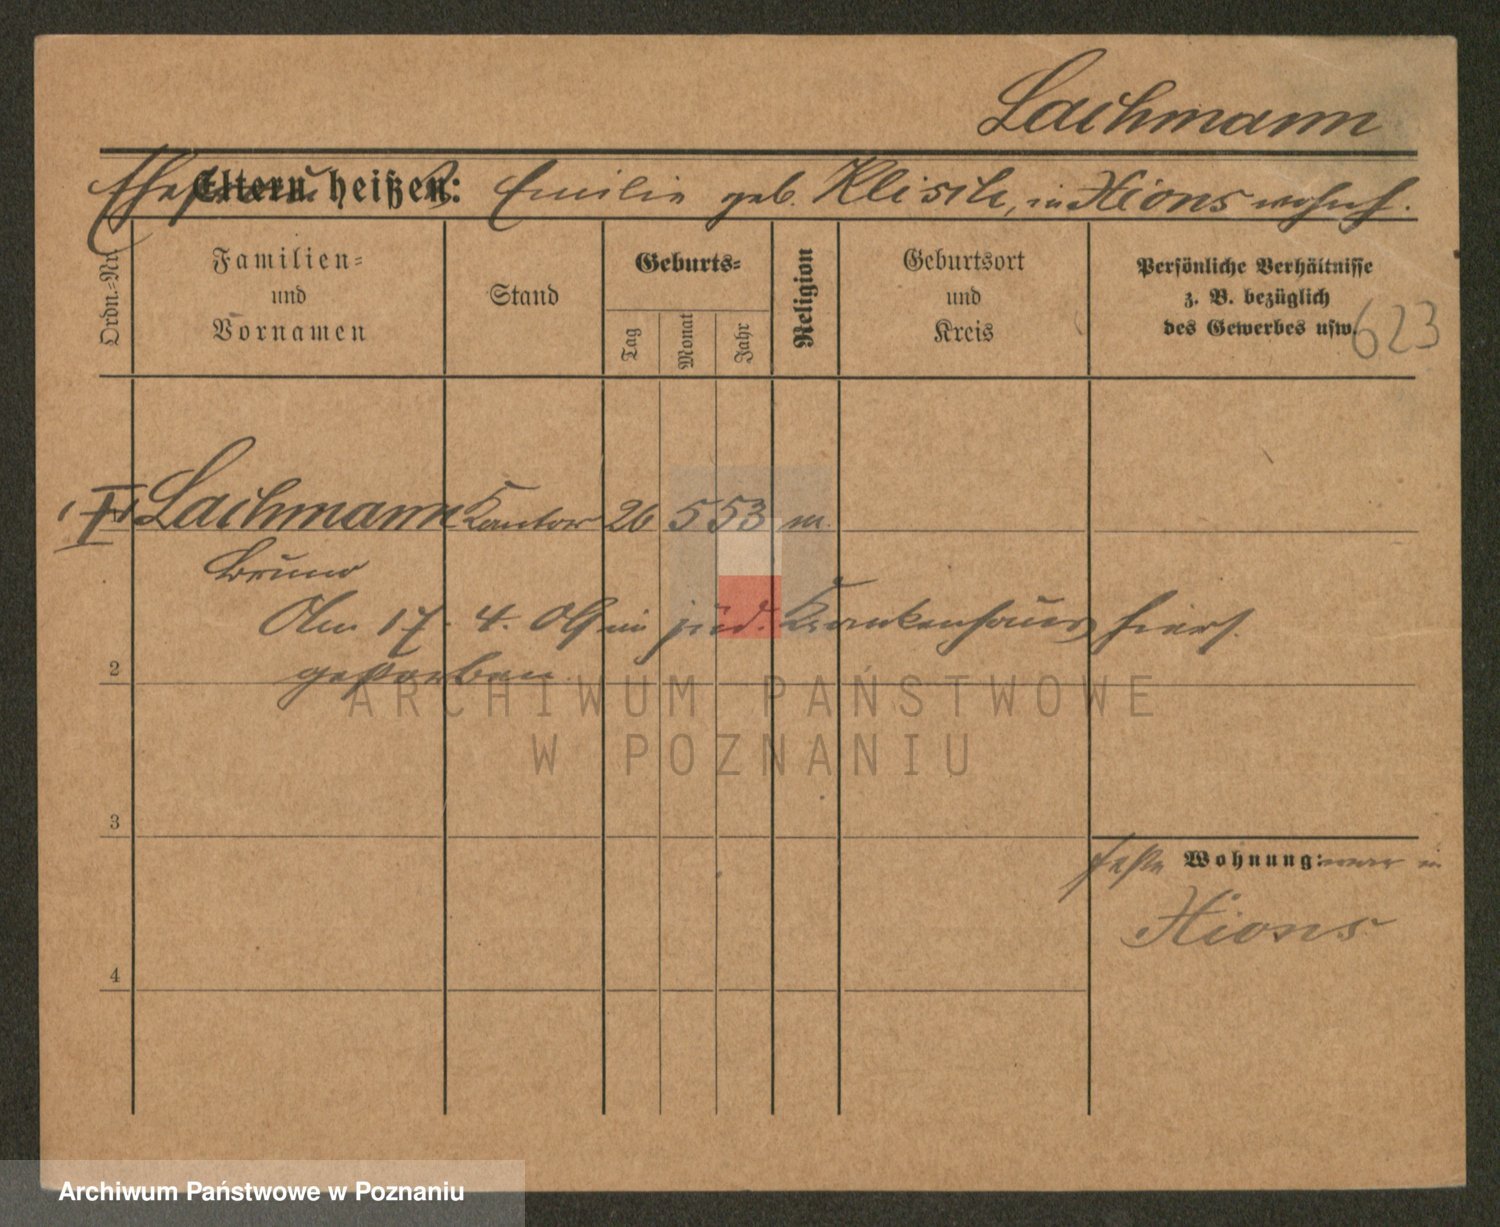 Lachmann
Eltern heißen:
Ehefrau Emilie geb. Klisch, in Xions wohnh.
Ordn.-Nr.
Familien-
und
Vornamen
Stand
Geburts-
Tag
Monat
Jahr
Religion
Geburtsort
und
Kreis
Persönliche Verhältnisse
z. B. bezüglich
des Gewerbes usw.
623
Lachmann Kantor 26 5 53 m.
Bruno
Am 17. 4. 09 im jüd. Krankenhaus hiers.
gestorben.
2
3
4
feste Wohnung: war in
Xions
ARCHIWUM PAŃSTWOWE
W POZNANIU
Archiwum Państwowe w Poznaniu